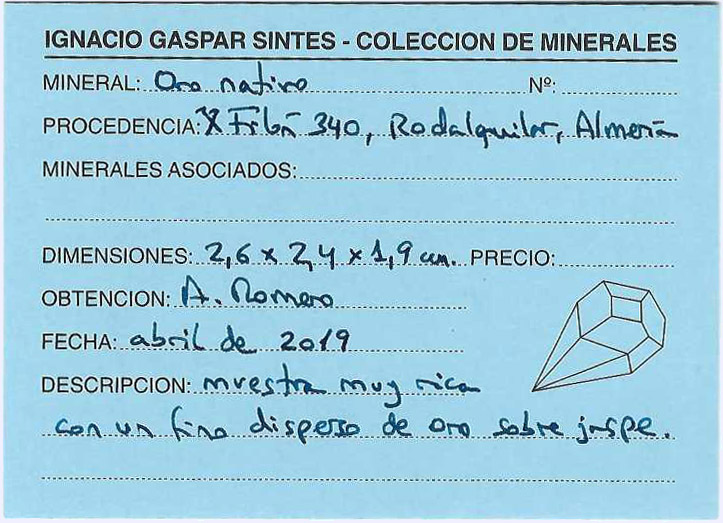 IGNACIO GASPAR SINTES - COLECCION DE MINERALES
MINERAL: Oro nativo Nº:
PROCEDENCIA: Filón 340, Rodalquilar, Almería
MINERALES ASOCIADOS:
DIMENSIONES: 2,6 x 2,4 x 1,9 cm. PRECIO:
OBTENCION: A. Romero
FECHA: abril de 2019
DESCRIPCION: muestra muy rica
con un fino disperso de oro sobre jaspe.